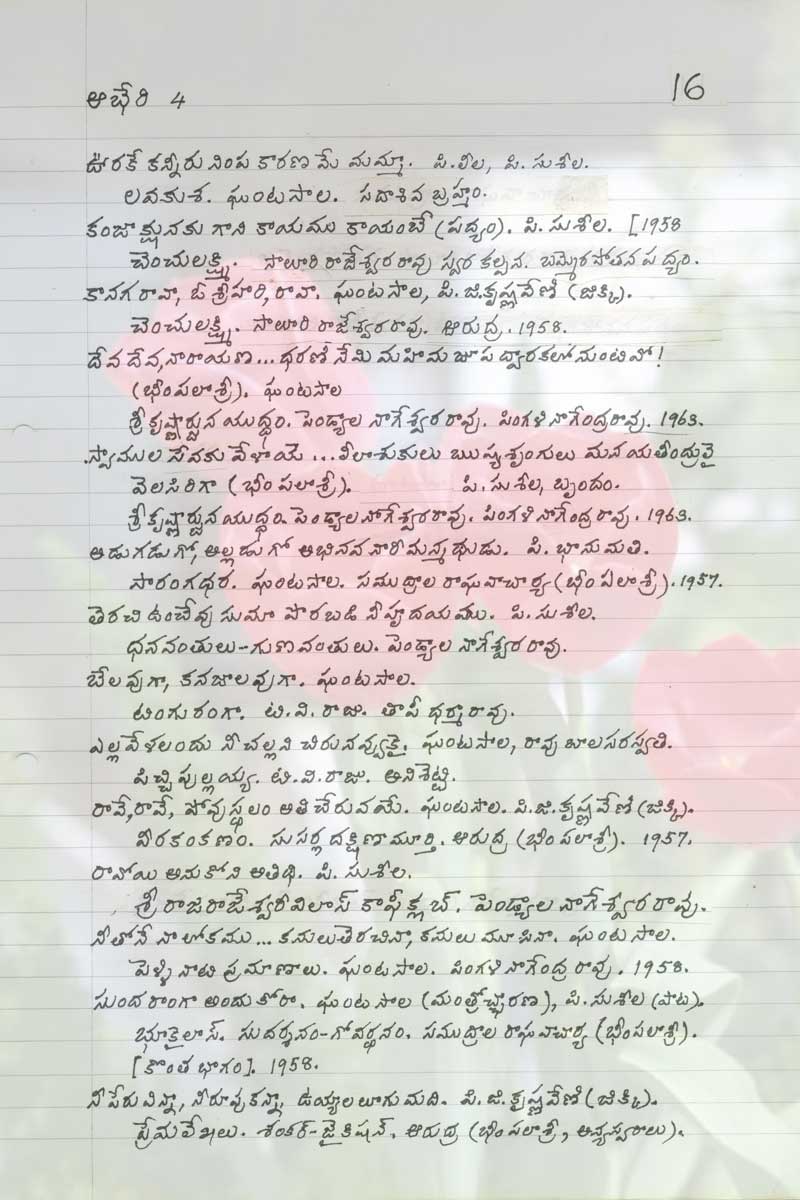 ఆభేరి 4
16
ఊరకే కన్నీరు నింప కారణమే మమ్మా. పి.లీల, పి. సుశీల.
లవకుశ. ఘంటసాల. సదాశివ బ్రహ్మం.
కంజాక్షునకు గాని కాయము కాయంబే (పద్యం). పి. సుశీల. [1958
చెంచులక్ష్మి. సాలూరి రాజేశ్వరరావు స్వర కల్పన. బమ్మెర పోతన పద్యం.
కానగ రావా, ఓ శ్రీహరి, రావా. ఘంటసాల, పి. జి.కృష్ణవేణి (జిక్కి).
చెంచులక్ష్మి. సాలూరి రాజేశ్వరరావు. ఆరుద్ర. 1958.
దేవ దేవ, నారాయణ... ధరణి నేమి మహిమ జూప ద్వారకలో నుంటివో!
(భీంపలాశ్రీ). ఘంటసాల
శ్రీ కృష్ణార్జున యుద్ధం. పెండ్యాల నాగేశ్వరరావు. పింగళి నాగేంద్రరావు. 1963.
స్వాముల సేవకు వేళాయె... లీలాశుకులు ఋష్యశృంగులు మునయతీంద్రులై
వెలసిరిగా (భీంపలాశ్రీ). పి. సుశీల, బృందం.
శ్రీ కృష్ణార్జున యుద్ధం. పెండ్యాల నాగేశ్వరరావు. పింగళి నాగేంద్రరావు. 1963.
అడుగడుగో, అల్లడుగో అభినవ నారీ మన్మథుడు. పి. భానుమతి.
సారంగధర. ఘంటసాల. సముద్రాల రాఘవాచార్య (భీంపలాశ్రీ). 1957.
తెరచి ఉంచేవు సుమా పొరబడి నీ హృదయము. పి. సుశీల.
ధనవంతులు-గుణవంతులు. పెండ్యాల నాగేశ్వరరావు.
బేలవుగా, కనజాలవుగా. ఘంటసాల.
టింగురంగా. టి.వి. రాజు. తాపీ ధర్మారావు.
ఎల్లవేళలందు నీ చల్లని చిరునవ్వుకై. ఘంటసాల, రావు బాలసరస్వతి.
పిచ్చి పుల్లయ్య. టి.వి. రాజు. అనిశెట్టి.
రావే, రావే, పోవుస్థలం అతి చేరువయే. ఘంటసాల. పి.జి.కృష్ణవేణి (జిక్కి).
వీరకంకణం. సుసర్ల దక్షిణామూర్తి. ఆరుద్ర (భీంపలాశ్రీ). 1957.
రావోయి అనుకోని అతిథి. పి. సుశీల.
శ్రీ రాజరాజేశ్వరీవిలాస్ కాఫీక్లబ్. పెండ్యాల నాగేశ్వరరావు.
నీతోనే నా లోకము... కనులు తెరచినా, కనులు మూసినా. ఘంటసాల.
పెళ్ళి నాటి ప్రమాణాలు. ఘంటసాల. పింగళి నాగేంద్రరావు. 1958.
సుందరాంగా అందుకోరా. ఘంటసాల (మంత్రోచ్చారణ), పి.సుశీల (పాట).
భూకైలాస్. సుదర్శనం-గోవర్ధనం. సముద్రాల రాఘవాచార్య (భీంపలాశ్రీ).
[కొంత భాగం]. 1958.
నీ పేరు విన్నా, నీ రూవు కన్నా ఉయ్యాలలూగు మది. పి. జి. కృష్ణవేణి (జిక్కి).
ప్రేమలేఖలు. శంకర్-జైకిషన్. ఆరుద్ర (భీంపలాశ్రీ, అన్యస్వరాలు).